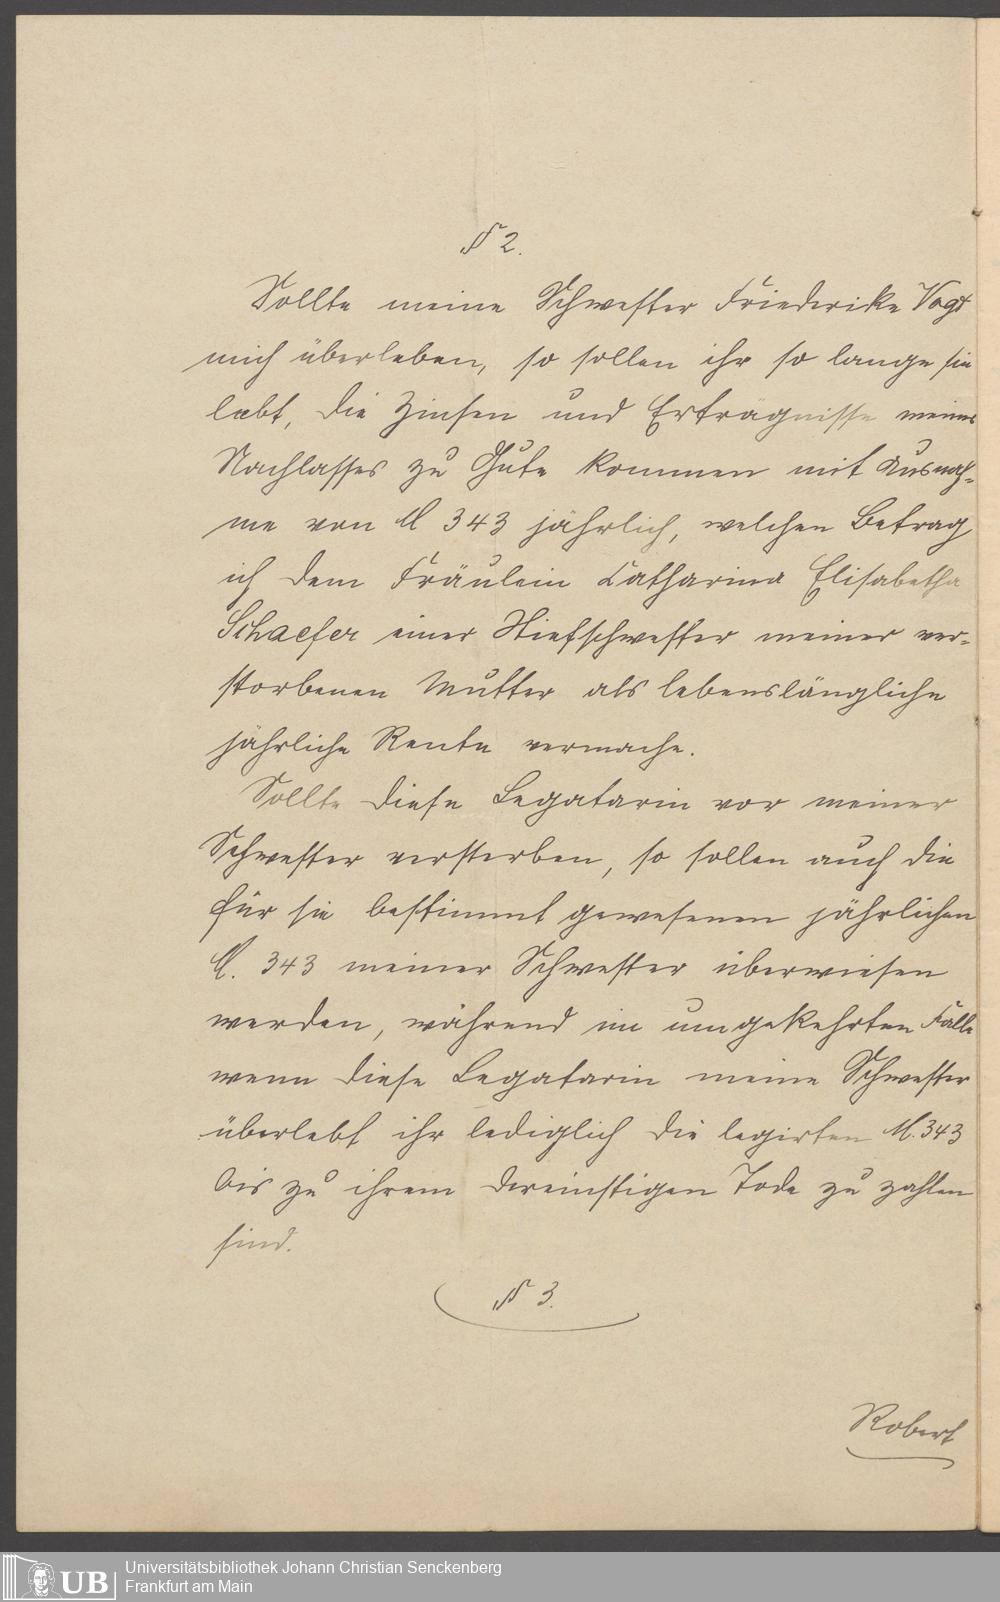 § 2.
Sollte meine Schwester Friederike Vogt
mich überleben, so sollen ihr so lange sie
lebt, die Zinsen und Erträgnisse meines
Nachlasses zu Gute kommen mit Ausnah-
me von M 343 jährlich, welchen Betrag
ich dem Fräulein Catharina Elisabetha
Schaefer einer Stiefschwester meiner ver-
storbenen Mutter als lebenslängliche
jährliche Rente vermache.
Sollte diese Legatarin vor meiner
Schwester versterben, so sollen auch die
für sie bestimmt gewesenen jährlichen
M. 343 meiner Schwester überwiesen
werden, während im umgekehrten Falle
wenn diese Legatarin meine Schwester
überlebt ihr lediglich die legirten M. 343
bis zu ihrem dereinstigen Tode zu zahlen
sind.
§ 3.
Robert
UB
Universitätsbibliothek Johann Christian Senckenberg
Frankfurt am Main